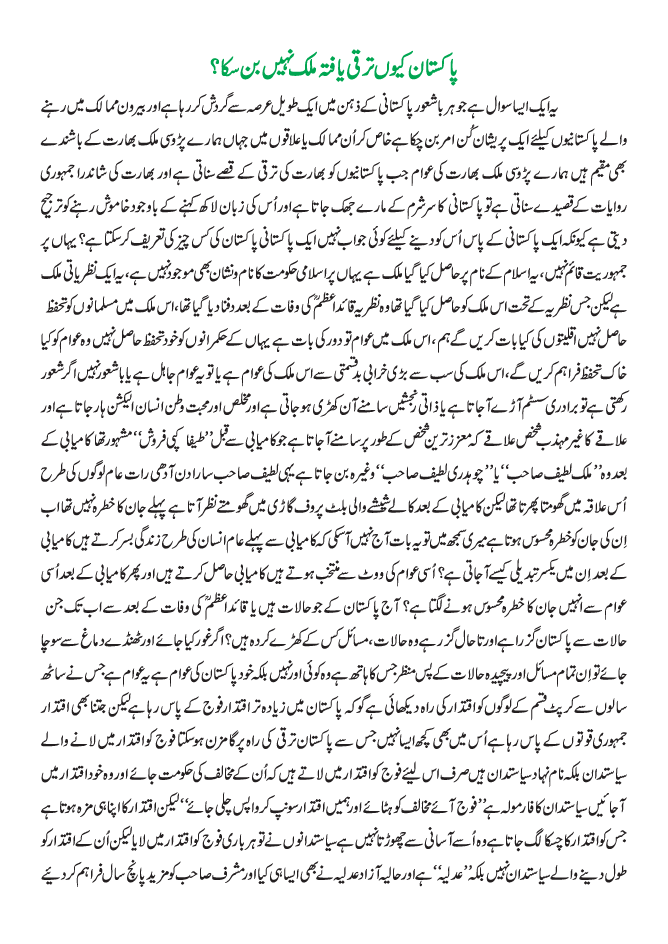 پاکستان کیوں ترقی یافتہ ملک نہیں بن سکا؟
یہ ایک ایسا سوال ہے جو ہر باشعور پاکستانی کے ذہن میں ایک طویل عرصہ سے گردش کر رہا ہے اور بیرون ممالک میں رہنے
والے پاکستانیوں کیلئے ایک پریشان کُن امر بن چکا ہے خاص کر اُن ممالک یا علاقوں میں جہاں ہمارے پڑوسی ملک بھارت کے باشندے
بھی مقیم ہیں ہمارے پڑوسی ملک بھارت کی عوام جب پاکستانیوں کو بھارت کی ترقی کے قصے سناتی ہے اور بھارت کی شاندرا جمہوری
روایات کے قصیدے سناتی ہے تو پاکستانی کا سر شرم کے مارے جھک جاتا ہے اور اُس کی زبان لاکھ کہنے کے باوجود خاموش رہنے کو ترجیح
دیتی ہے کیونکہ ایک پاکستانی کے پاس اُس کو دینے کیلئے کوئی جواب نہیں ایک پاکستانی پاکستان کی کس چیز کی تعریف کر سکتا ہے؟ یہاں پر
جمہوریت قائم نہیں، یہ اسلام کے نام پر حاصل کیا گیا ملک ہے یہاں پر اسلامی حکومت کا نام و نشان بھی موجود نہیں ہے، یہ ایک نظریاتی ملک
ہے لیکن جس نظریہ کے تحت اس ملک کو حاصل کیا گیا تھا وہ نظریہ قائداعظمؒ کی وفات کے بعد دفنا دیا گیا تھا، اس ملک میں مسلمانوں کو تحفظ
حاصل نہیں اقلیتوں کی کیا بات کریں گے ہم، اس ملک میں عوام تو دور کی بات ہے یہاں کے حکمرانوں کو خود تحفظ حاصل نہیں وہ عوام کو کیا
خاک تحفظ فراہم کریں گے، اس ملک کی سب سے بڑی خرابی بدقسمتی سے اس ملک کی عوام ہے یا تو یہ عوام جاہل ہے یا باشعور نہیں اگر شعور
رکھتی ہے تو برادری سسٹم آڑے آ جاتا ہے یا ذاتی رنجشیں سامنے آن کھڑی ہو جاتی ہے اور مخلص اور محبت وطن انسان الیکشن ہار جاتا ہے اور
علاقے کا غیر مہذب شخص علاقے کہ معزز ترین شخص کے طور پر سامنے آ جاتا ہے جو کامیابی سے قبل ’’طیفا کپی فروش‘‘ مشہور تھا کامیابی کے
بعد وہ ’’ملک لطیف صاحب‘‘ یا ’’چوہدری لطیف صاحب‘‘ وغیرہ بن جاتا ہے یہی لطیف صاحب سارا دن آدھی رات عام لوگوں کی طرح
اُس علاقہ میں گھومتا پھرتا تھا لیکن کامیابی کے بعد کالے شیشے والی بلٹ پروف گاڑی میں گھومتے نظر آتا ہے پہلے جان کا خطرہ نہیں تھا اب
اِن کی جان کو خطرہ محسوس ہوتا ہے میری سمجھ میں تو یہ بات آج نہیں آ سکی کہ کامیابی سے پہلے عام انسان کی طرح زندگی بسر کرتے ہیں کامیابی
کے بعد اِن میں یکسر تبدیلی کیسے آ جاتی ہے؟ اُسی عوام کی ووٹ سے منتخب ہوتے ہیں کامیابی حاصل کرتے ہیں اور پھر کامیابی کے بعد اُسی
عوام سے انہیں جان کا خطرہ محسوس ہونے لگتا ہے؟ آج پاکستان کے جو حالات ہیں یا قائداعظمؒ کی وفات کے بعد سے اب تک جن
حالات سے پاکستان گزرا ہے اور تاحال گزر رہے وہ حالات، مسائل کس کے کھڑے کردہ ہیں؟ اگر غور کیا جائے اور ٹھنڈے دماغ سے سوچا
جائے تو اِن تمام مسائل اور پیچیدہ حالات کے پس منظر جس کا ہاتھ ہے وہ کوئی اور نہیں بلکہ خود پاکستان کی عوام ہے یہ عوام ہے جس نے ساٹھ
سالوں سے کرپٹ قسم کے لوگوں کو اقتدار کی راہ دیکھائی ہے گو کہ پاکستان میں زیادہ تر اقتدار فوج کے پاس رہا ہے لیکن جتنا بھی اقتدار
جمہوری قوتوں کے پاس رہا ہے اُس میں بھی کچھ ایسا نہیں جس سے پاکستان ترقی کی راہ پر گامزن ہو سکتا فوج کو اقتدار میں لانے والے
سیاستدان بلکہ نام نہاد سیاستدان ہیں صرف اس لیئے فوج کو اقتدار میں لاتے ہیں کہ اُن کے مخالف کی حکومت جائے اور وہ خود اقتدار میں
آ جائیں سیاستدان کا فارمولہ ہے ’’فوج آئے مخالف کو ہٹائے اور ہمیں اقتدار سونپ کر واپس چلی جائے‘‘ لیکن اقتدار کا اپنا ہی مزہ ہوتا ہے
جس کو اقتدار کا چسکا لگ جاتا ہے وہ اُسے آسانی سے چھوڑتا نہیں ہے سیاستدانوں نے تو ہر باری فوج کو اقتدار میں لایا لیکن اُن کے اقتدار کو
طول دینے والے سیاستدان نہیں بلکہ ’’عدلیہ‘‘ ہے اور حالیہ آزاد عدلیہ نے بھی ایسا ہی کیا اور مشرف صاحب کو مزید پانچ سال فراہم کر دئیے